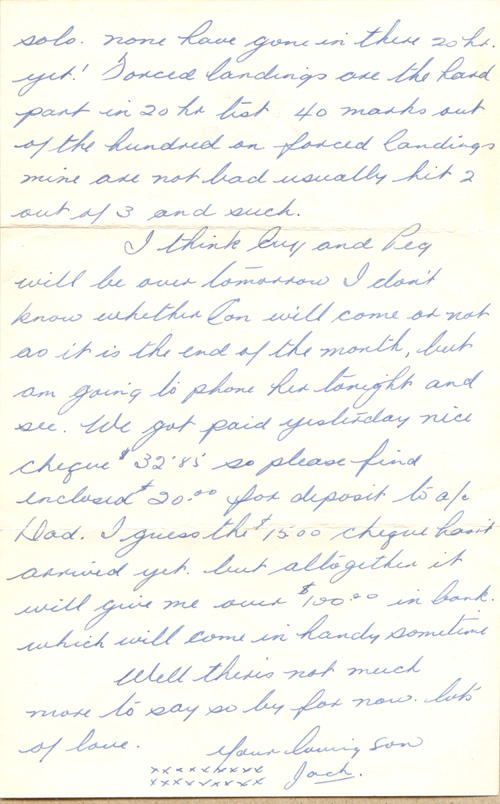 solo. none have gone in there 20 hr.
yet! Forced landings are the hard
part in 20 hr test 40 marks out
of the hundred on forced landings
mine are not bad usually hit 2
out of 3 and such.
I think Guy and Peg
will be over tomorrow I don't
know whether Con will come or not
as it is the end of the month, but
am going to phone her tonight and
see. We got paid yesterday nice
cheque $32.85 so please find
enclosed $20.00 for deposit to a/c
Dad. I guess the $15.00 cheque hasn't
arrived yet. but altogether it
will give me over $100.00 in bank.
which will come in handy sometime
Well theris not much
more to say so by for now. lots
of love. Your loving son
xxxxxxxxx Jack.
xxxxxxxxx